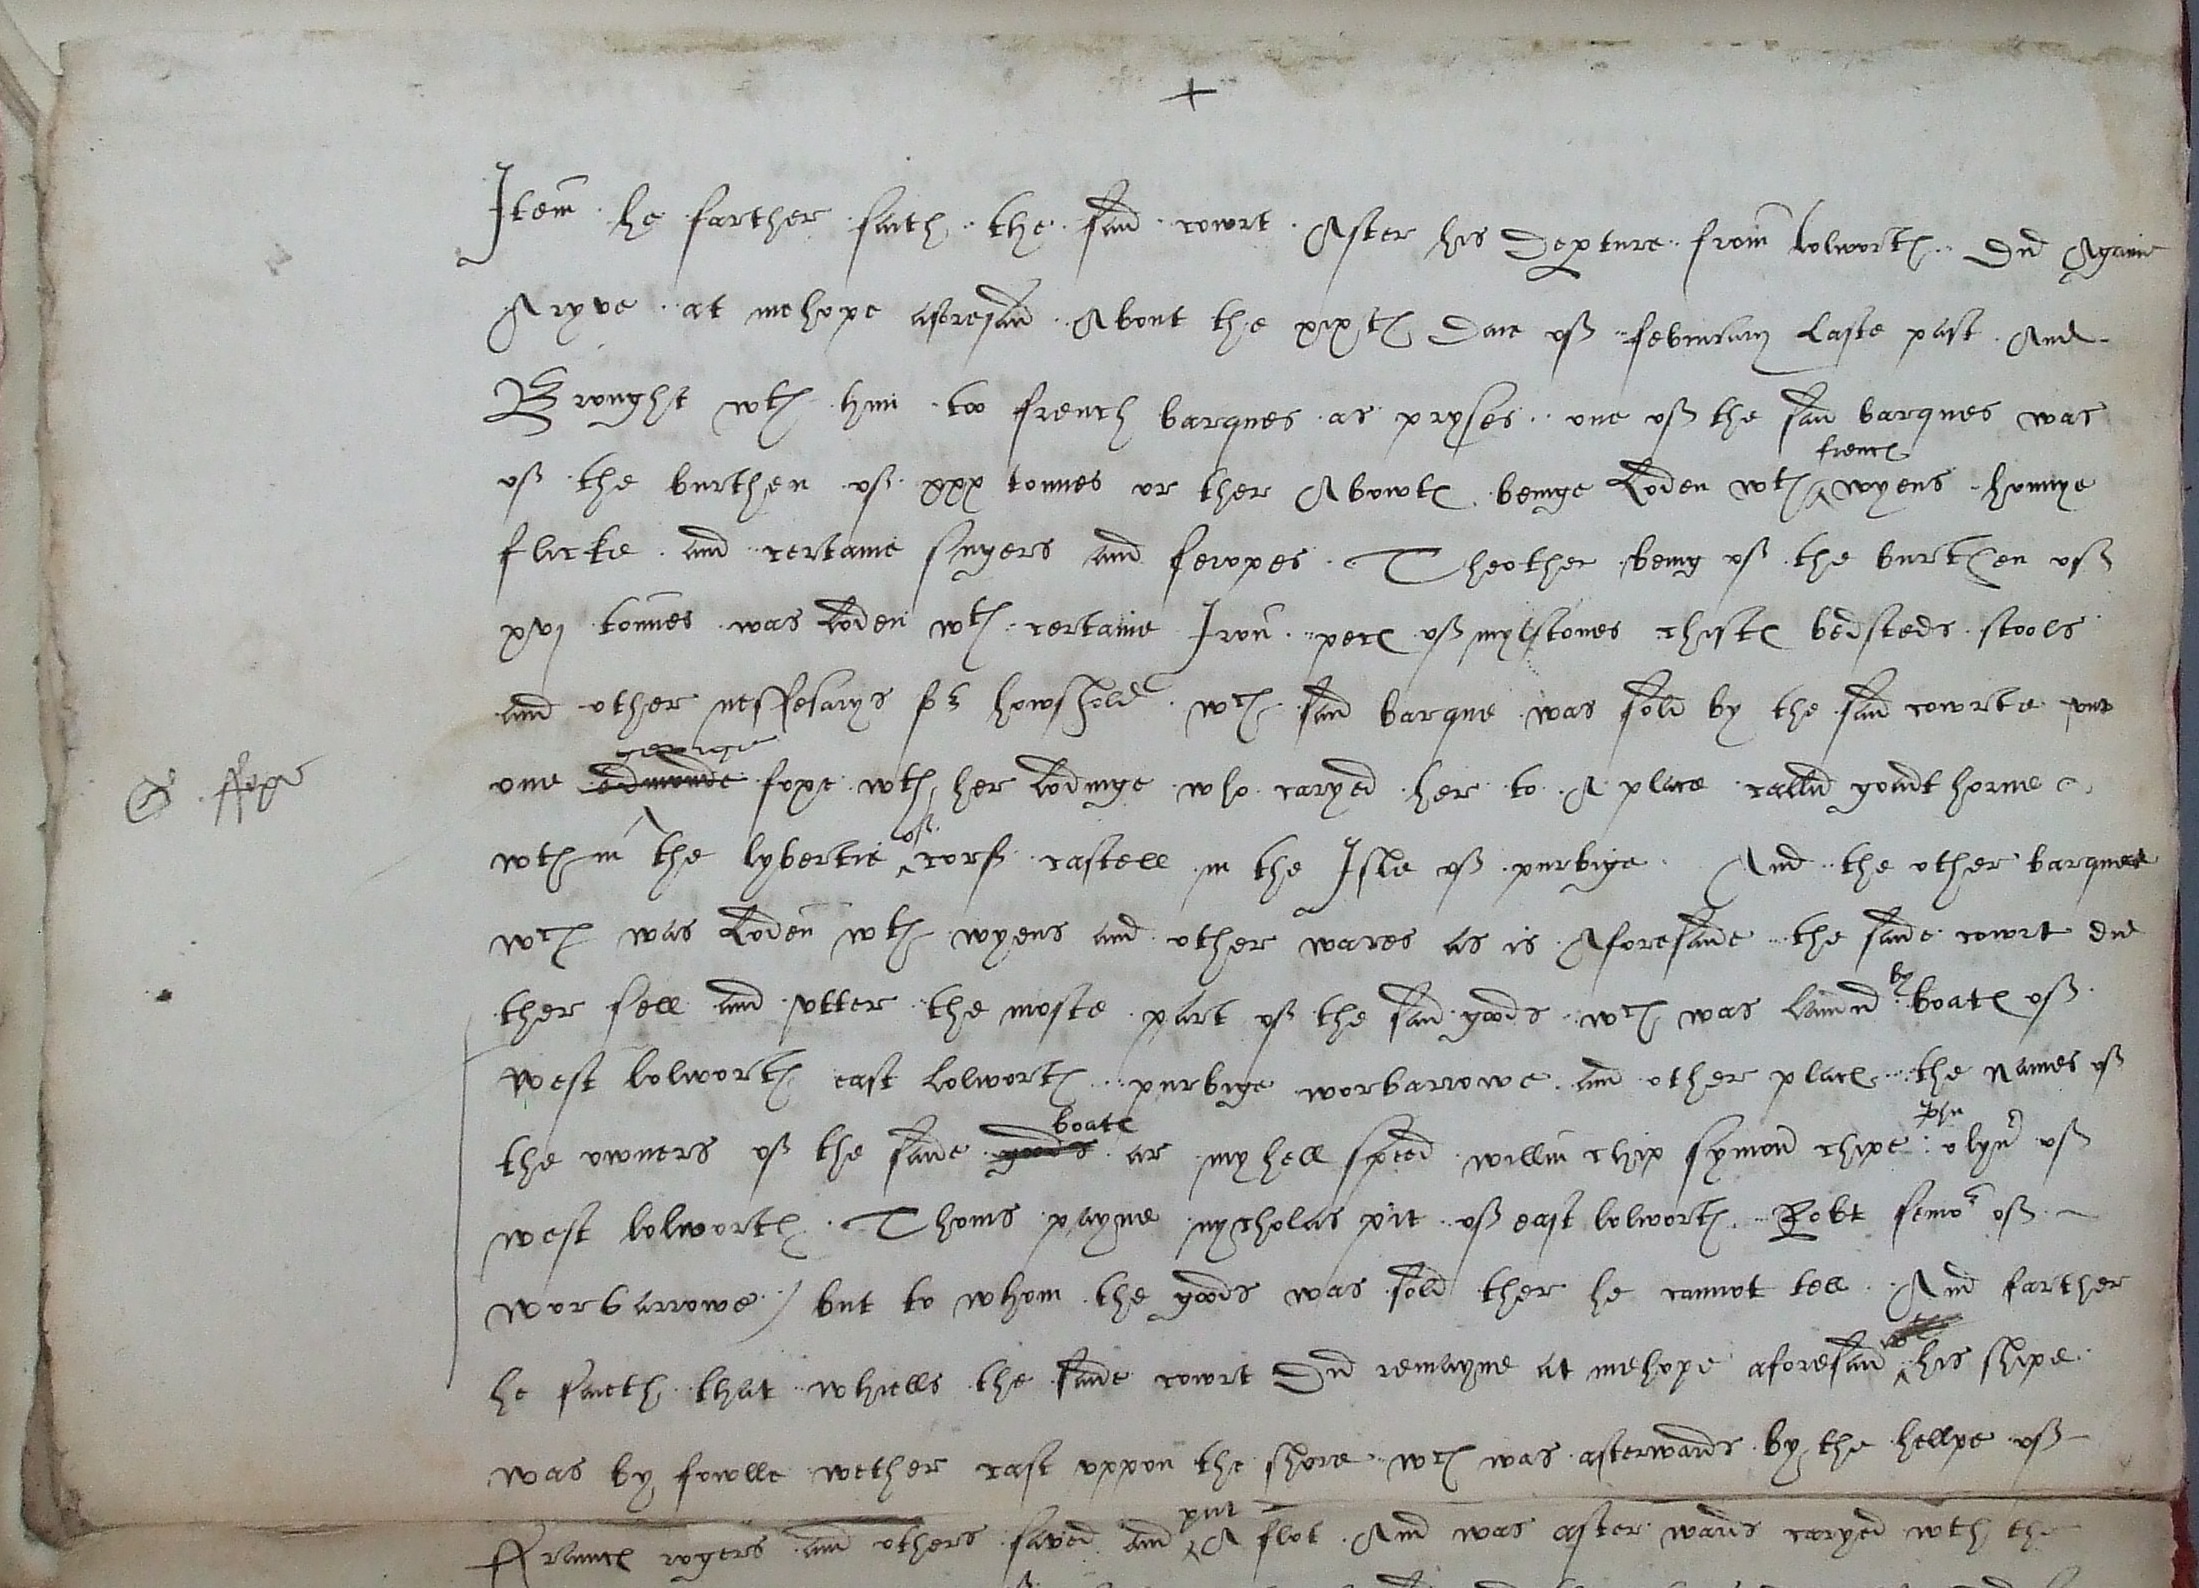 +
Item he farther saith the said cowrt After his Depture from lolworth Did Againe
Aryve at mehope aforesaid About the xixth Daie off februarij Laste past And
Browght wth him too french barques as pryses one off the said barques was
off the burthen off xxx tonnes or ther Abowte beinge Loden wth ^french wyens honnye
flicke and certaine sugers and seropes Theother being off the burthen off
xvj tonnes was Loden wth certaine Iron pece off mylstones chiste bedsteds stools
and other nessesarys for howshold wch said barque was sold by the said cowrte unto
G ffope
one edmonde george fope wth her lodinge who caryed her to A place called goadthorne
wthin the lybertie ^off corff castell in the Isle off purbige And the other barque
wch was Loden wth wyens and other wares as is Aforesaide the saide cowrt did
ther sell and utter the moste part off the said goods wch was landid by boate off
west lolworth east lolworth purbige worbarrowe and other place the names off
the owners off the saide goods boate ar myhell speed willm chip symon chipe olyn off
west lolworth Thoms payne nycholas pit off east lolworth Robt semor off
worbarrowe / but to whom the goods was sold ther he cannot tell And farther
he saieth that whiells the saide cowrt Did remayne at mehope aforesaid his shipe
was by fowlle wether cast uppon the shore wch was afterwards by the hellpe off
ffraunce rogers and others saved and ^put A flot And was after wards caryed wth the